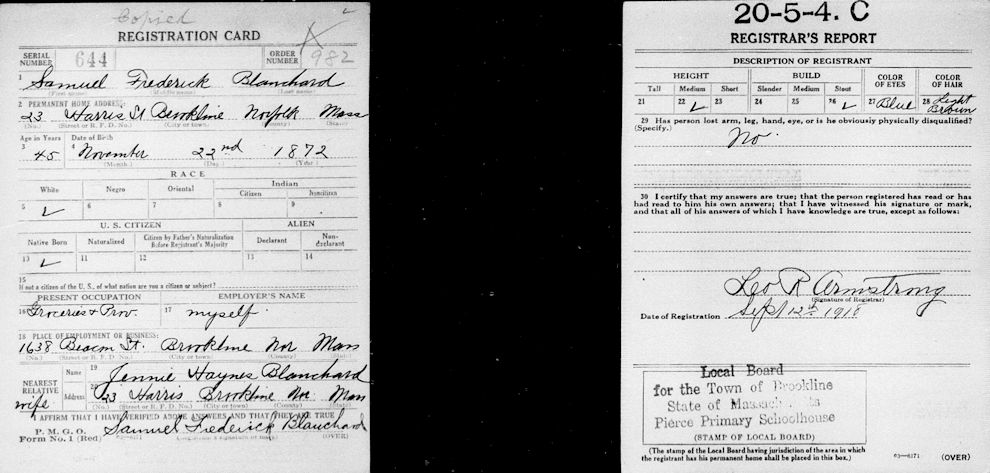 Copied
REGISTRATION CARD
SERIAL NUMBER 644 ORDER NUMBER 982
1 Samuel Frederick Blanchard
(First name) (Middle name) (Last name)
2 PERMANENT HOME ADDRESS:
23 Harris St Brookline Norfolk Mass
(No.) (Street or R. F. D. No.) (City or town) (County) (State)
Age in Years Date of Birth
3 45 4 November 22nd 1872
(Month.) (Day.) (Year.)
RACE
White Negro Oriental Indian
Citizen Noncitizen
5 ✓ 6 7 8 9
U. S. CITIZEN ALIEN
Native Born Naturalized Citizen by Father's Naturalization Before Registrant's Majority Declarant Non-declarant
10 ✓ 11 12 13 14
15
If not a citizen of the U. S., of what nation are you a citizen or subject?
PRESENT OCCUPATION EMPLOYER'S NAME
16 Groceries & Prov. 17 myself
18 PLACE OF EMPLOYMENT OR BUSINESS:
1638 Beacon St. Brookline Nor Mass
(No.) (Street or R. F. D. No.) (City or town) (County) (State)
NEAREST RELATIVE Name 19 Jennie Haynes Blanchard
wife Address 20 23 Harris Brookline Nor Mass
(No.) (Street or R. F. D. No.) (City or town) (County) (State)
I AFFIRM THAT I HAVE VERIFIED ABOVE ANSWERS AND THAT THEY ARE TRUE
P. M. G. O.
Form No. 1 (Red) Samuel Frederick Blanchard
(OVER)
20-5-4. C
REGISTRAR'S REPORT
DESCRIPTION OF REGISTRANT
HEIGHT BUILD COLOR OF EYES COLOR OF HAIR
Tall Medium Short Slender Medium Stout
21 22 ✓ 23 24 25 26 ✓ 27 Blue 28 Light Brown
29 Has person lost arm, leg, hand, eye, or is he obviously physically disqualified?
(Specify.) No.
30 I certify that my answers are true; that the person registered has read or has
had read to him his own answers; that I have witnessed his signature or mark,
and that all of his answers of which I have knowledge are true, except as follows:
Leo R Armstrong
(Signature of Registrar)
Date of Registration Sept 12th 1918
Local Board
for the Town of Brookline
State of
Pierce Primary Schoolhouse
(STAMP OF LOCAL BOARD)
(The stamp of the Local Board having jurisdiction of the area in which
the registrant has his permanent home shall be placed in this box.)
03—6171 (OVER)